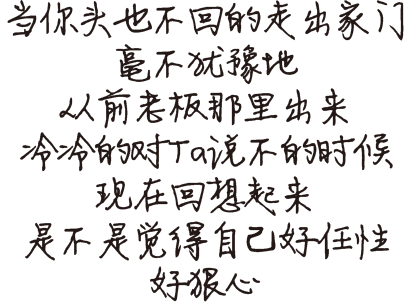 当你头也不回的走出家门
毫不犹豫地
从前老板那里出来
冷冷的对Ta说不的时候
现在回想起来
是不是觉得自己好任性
好狠心